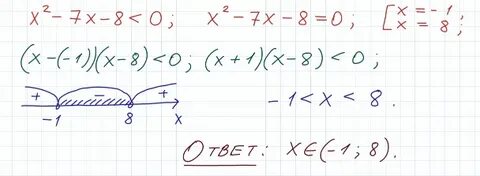 x² - 7x - 8 < 0; x² - 7x - 8 = 0; [x = -1; x = 8;
(x - (-1))(x - 8) < 0; (x + 1)(x - 8) < 0;
+ - +
-1 8 x
-1 < x < 8.
Ответ: x ∈ (-1; 8).